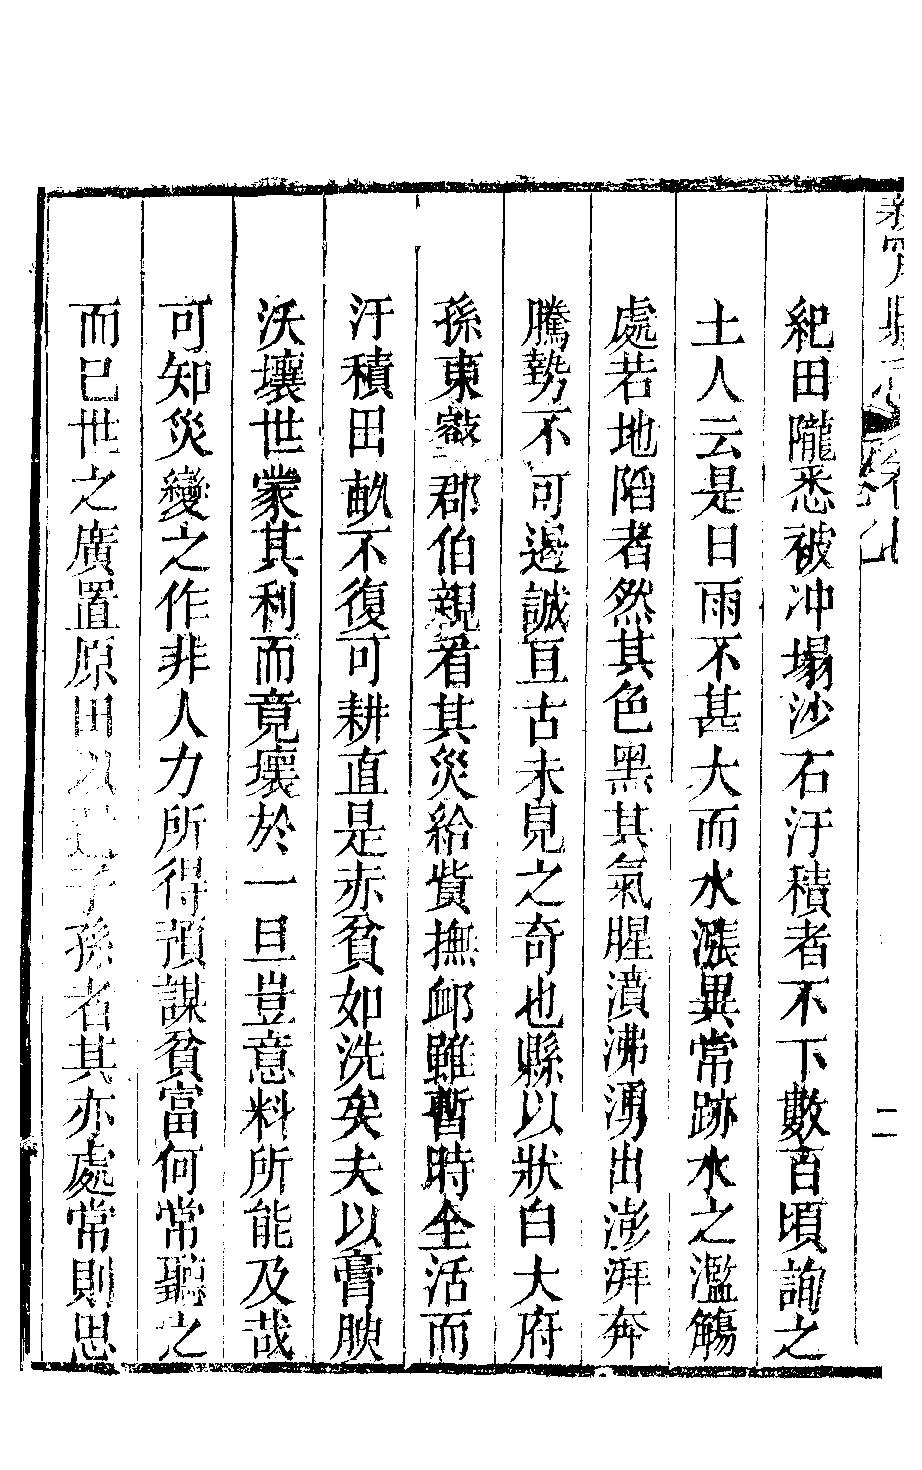 紀田隴悉被冲塌沙石汙積者不下數百頃詢之
土人云是日雨不甚大而水漲異常跡水之濫觴
處若地陷者然其色黑其氣腥濆沸湧出澎湃奔
騰勢不可遏誠亘古未見之奇也縣以狀白大府
孫東𤅬郡伯親看其災給貲撫邮雖暫時全活而
汙積田畝不復可耕直是赤貧如洗矣夫以膏腴
沃壤世蒙其利而竟壞於一旦豈意料所能及哉
可知災變之作非人力所得預謀貧富何常聽之
而已世之廣置原田以遺子孫者其亦處常則思
義寧縣志
二